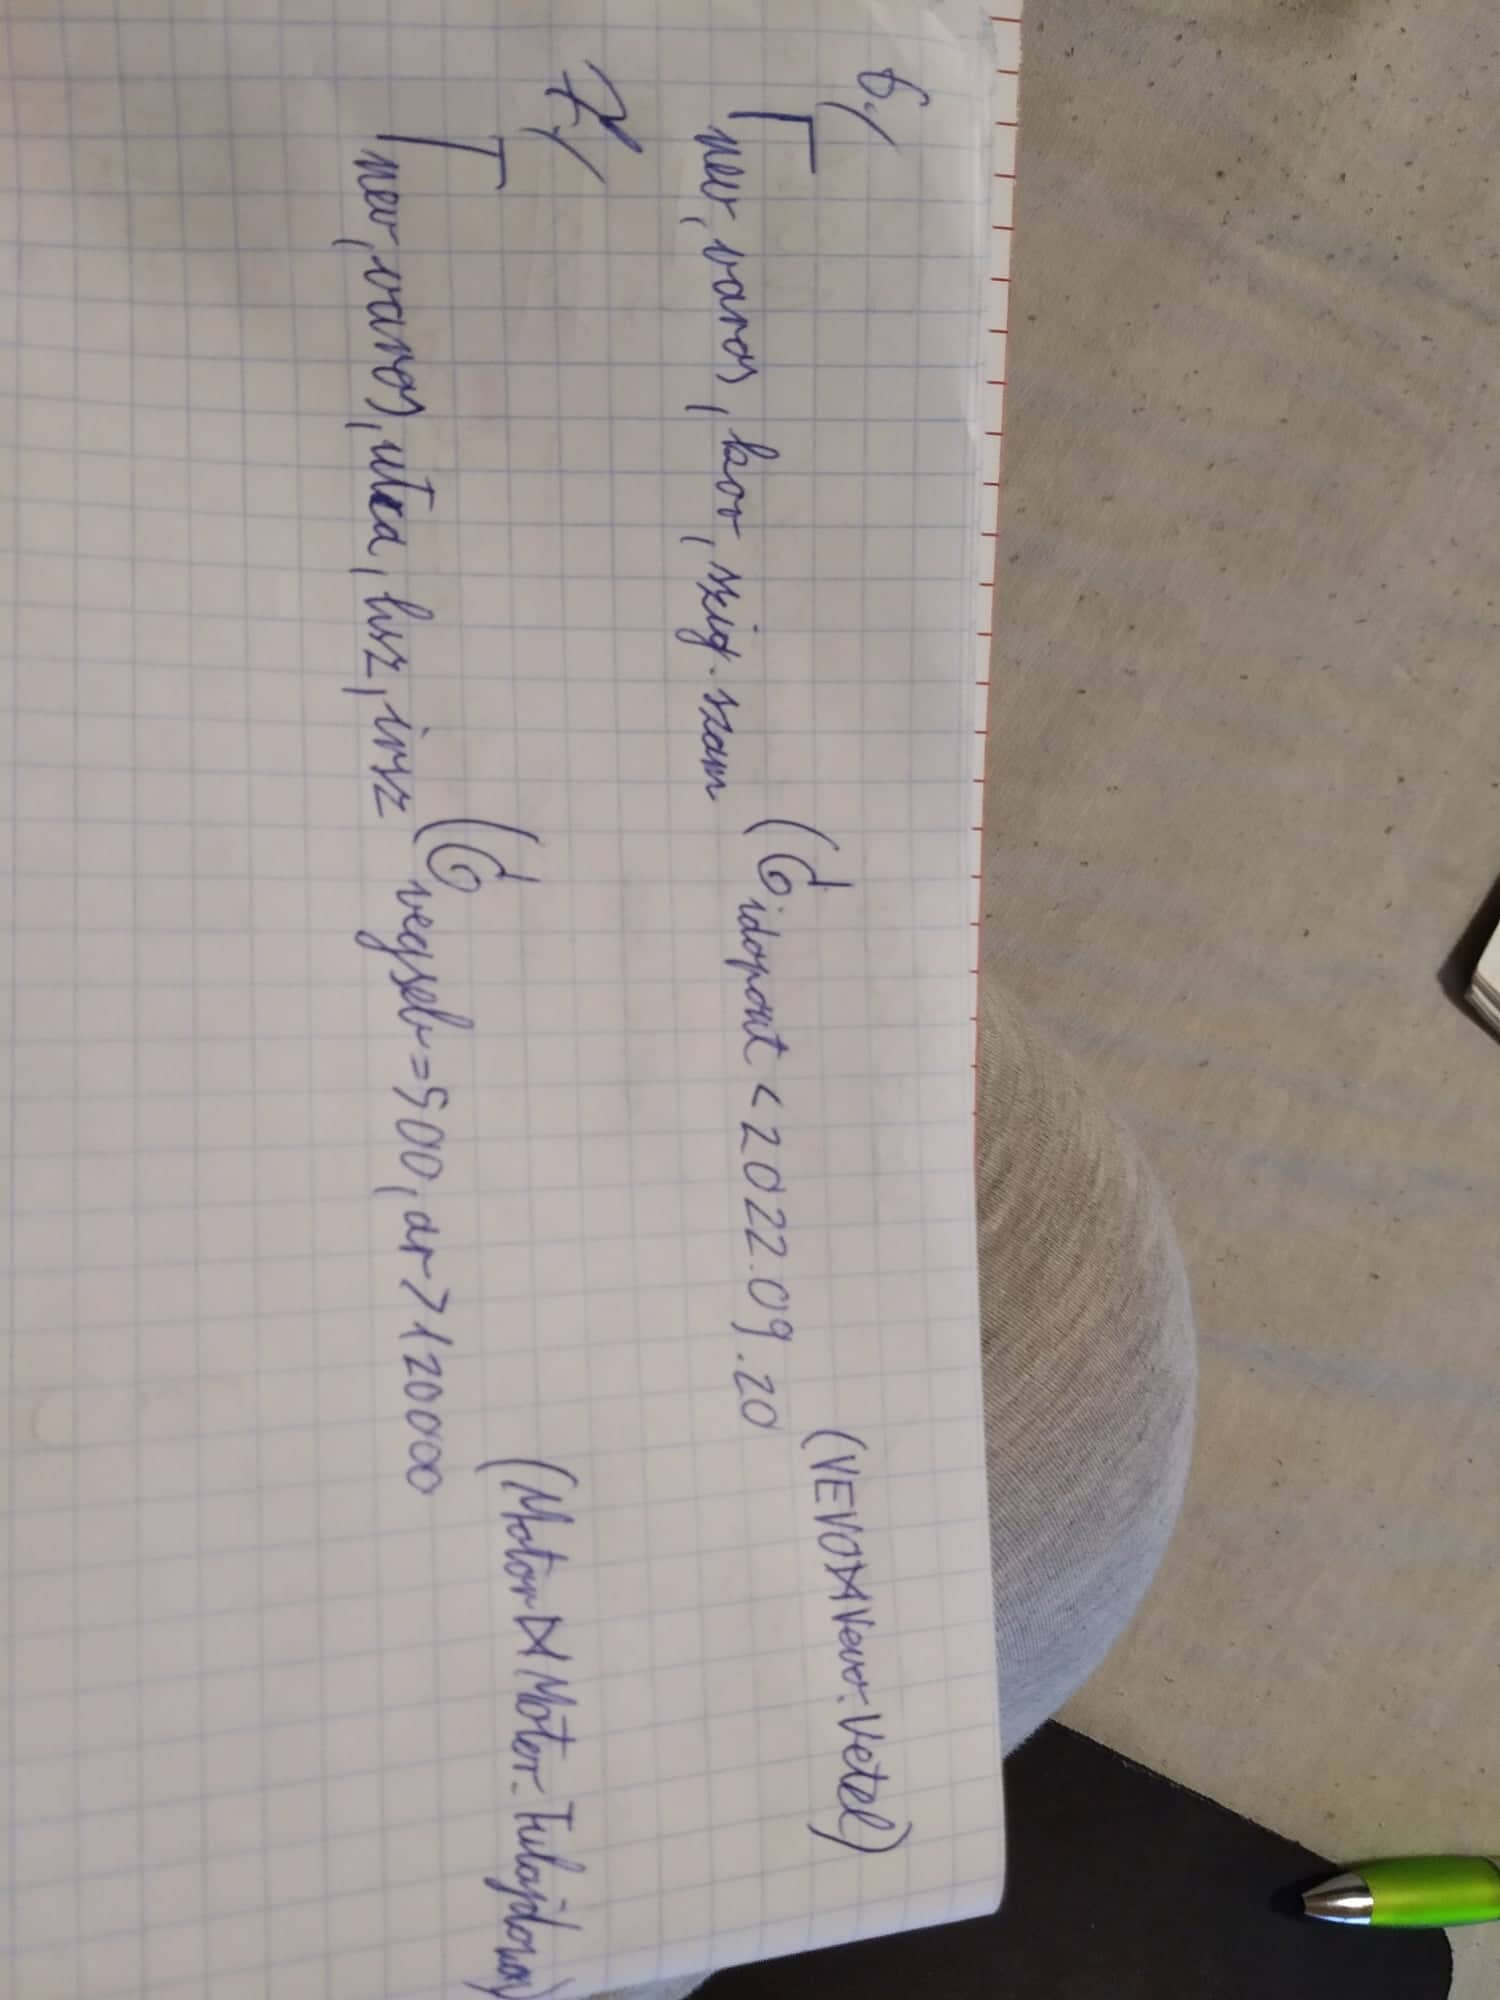 6./
π nev, varos, kor, szig.szam (σ idopont < 2022.09.20 (VEVO⋈Vevo.Vetel)
7./
π nev, varos, utca, hsz, irsz (σ vegseb=900, ar>120000 (Motor⋈Motor_Tulajdona)